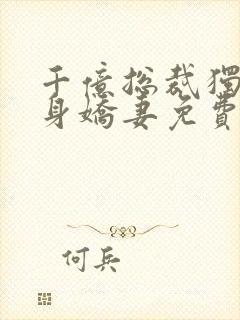 千億總裁獨
身嬌妻免費
何兵